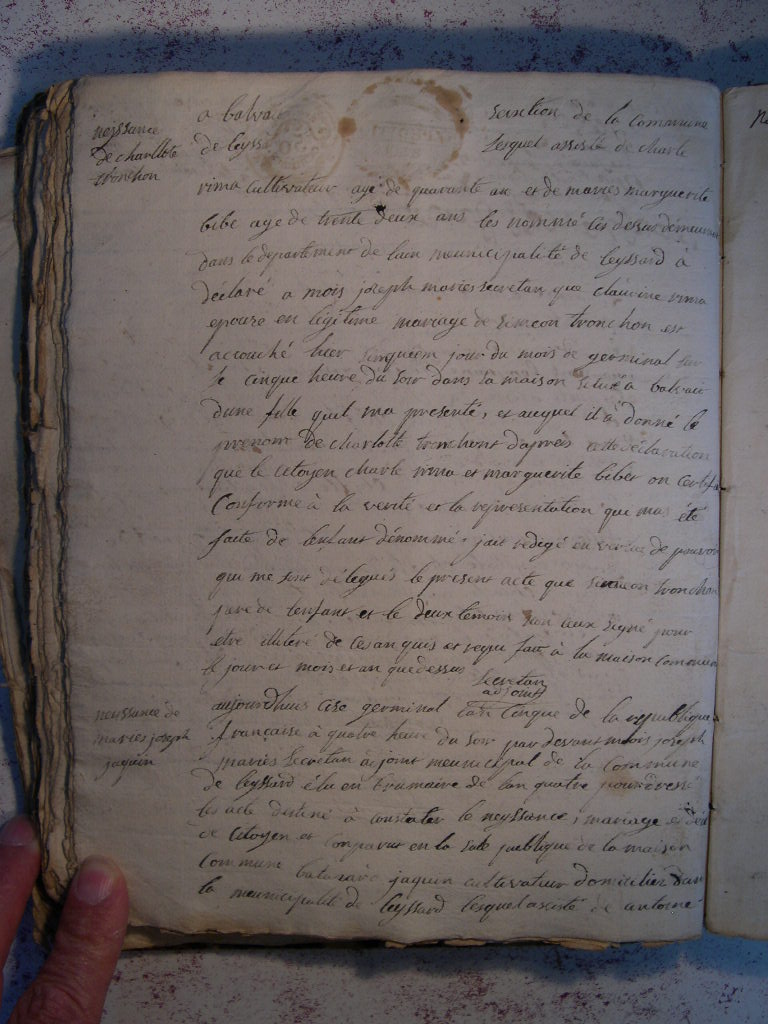 neyssance
de charllote
tronchon
a balvai section de la commune
de leyss lesquel assisté de charle
rima cultivateur agé de quarante an et de maries marguerite
bibe age de trente deux ans les nommé les desus
dans le departement de lain meunicipalité de leyssard a
declaré a mois joseph maries secretan que claudine rima
epouze en légitime mariage de simeon tronchon est
accouché hier sinquiem jour du mois de germinal sur
le cinque heure du soir dans la maison situé a balvai
dune fille quil ma presenté, et auquel il a donné le
prenom de charlotte tronchont dapres cette déclaration
que le citoyen charle rima et marguerite bibet on certifie
Conforme à la verité et la representation que mas été
faite de lenfant dénommé, jait redegé en vertue de pouvoir
qui me sont délegués le present acte que simeon tronchon
pere de lenfant et le deux temoin non aux signé pour
etre illiteré de ces an quis et requi fait à la maison commune
le jour et mois et an que dessus secretan
adjoint
neyssance de
maries joseph
jaquin
aujourdhuis cise germinal lan cinque de la republique
française à quatre heure du soir par devant mois joseph
maries secretan adjoint meunicipal de la commune
de leyssard élu en frumaire de lan quatre pour dressé
les acte distiné à constater le neyssance, mariage et
ce citoyen et comparut en la sale publique de la maison
Commune jaquin cultivateur domicilier dan
la meunicipalité de leyssard lesquel assisté de antoine